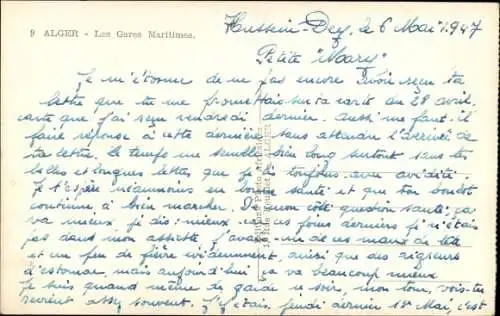 9 ALGER - Les Gares Maritimes.
Hussein-Dey, le 6 Mai 1947
Petite "Mary"
Je m'étonne de ne pas encore avoir reçu ta
lettre que tu me promettais sur ta carte du 28 avril,
carte que j'ai reçu vendredi dernier. Aussi me faut-il
faire réponse à cette dernière sans attendre l'arrivée de
ta lettre. Le temps me semble bien long surtout sans tes
belles et longues lettres que je lis toujours avec avidité.
Je t'espère néanmoins en bonne santé et que ton boulot
continue à bien marcher. De mon côté question santé, ça
va mieux, je dis: mieux, car ces jours derniers je n'étais
pas dans mon assiette j'avais un de ces maux de tête
et un peu de fièvre évidemment, ainsi que des aigreurs
d'estomac, mais aujourd'hui ça va beaucoup mieux.
Je suis quand même de garde ce soir, mon tour, vois-tu
revient assez souvent. J'y étais, jeudi dernier 1er Mai, c'est